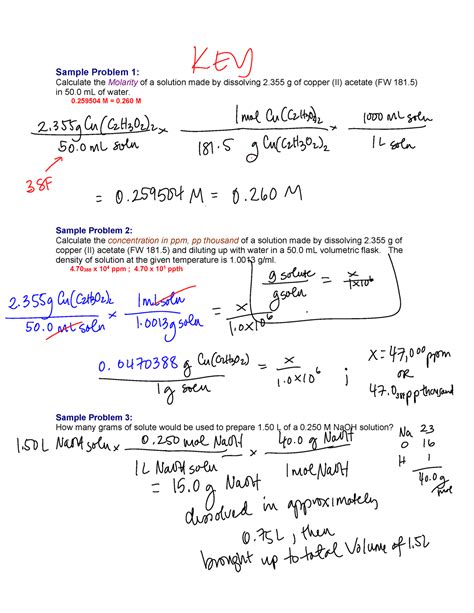 KEY
Sample Problem 1:
Calculate the Molarity of a solution made by dissolving 2.355 g of copper (II) acetate (FW 181.5)
in 50.0 mL of water.
0.259504 M = 0.260 M
2.355g Cu(C2H3O2)2 / 50.0 mL soln × 1 mol Cu(C2H3O2)2 / 181.5 g Cu(C2H3O2)2 × 1000 mL soln / 1 L soln
3SF
= 0.259504 M = 0.260 M
Sample Problem 2:
Calculate the concentration in ppm, pp thousand of a solution made by dissolving 2.355 g of
copper (II) acetate (FW 181.5) and diluting up with water in a 50.0 mL volumetric flask. The
density of solution at the given temperature is 1.0013 g/ml.
4.70388 x 10⁴ ppm ; 4.70 x 10¹ ppth
g solute / g soln = x / 1x10⁶
2.355 g Cu(C2H3O2)2 / 50.0 mL soln × 1 mL soln / 1.0013 g soln = x / 1.0x10⁶
0.0470388 g Cu(C2H3O2)2 / 1 g soln = x / 1.0x10⁶ ; x = 47,000 ppm
OR
47.0388 pp thousand
Sample Problem 3:
How many grams of solute would be used to prepare 1.50 L of a 0.250 M NaOH solution?
1.50 L NaOH soln × 0.250 mol NaOH / 1 L NaOH soln × 40.0 g NaOH / 1 mol NaOH
Na 23
O 16
H 1
40.0 g
= 15.0 g NaOH
dissolved in approximately
0.75 L, then
brought up to total Volume of 1.5L